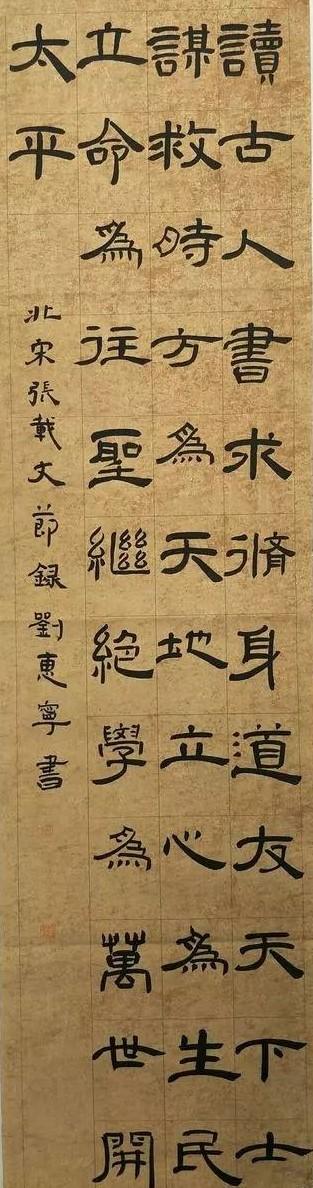 讀古人書求脩身道友天下士
謀救時方為天地立心為生民
立命為往聖繼絕學為萬世開
太平
北宋張載文節錄劉惠寧書